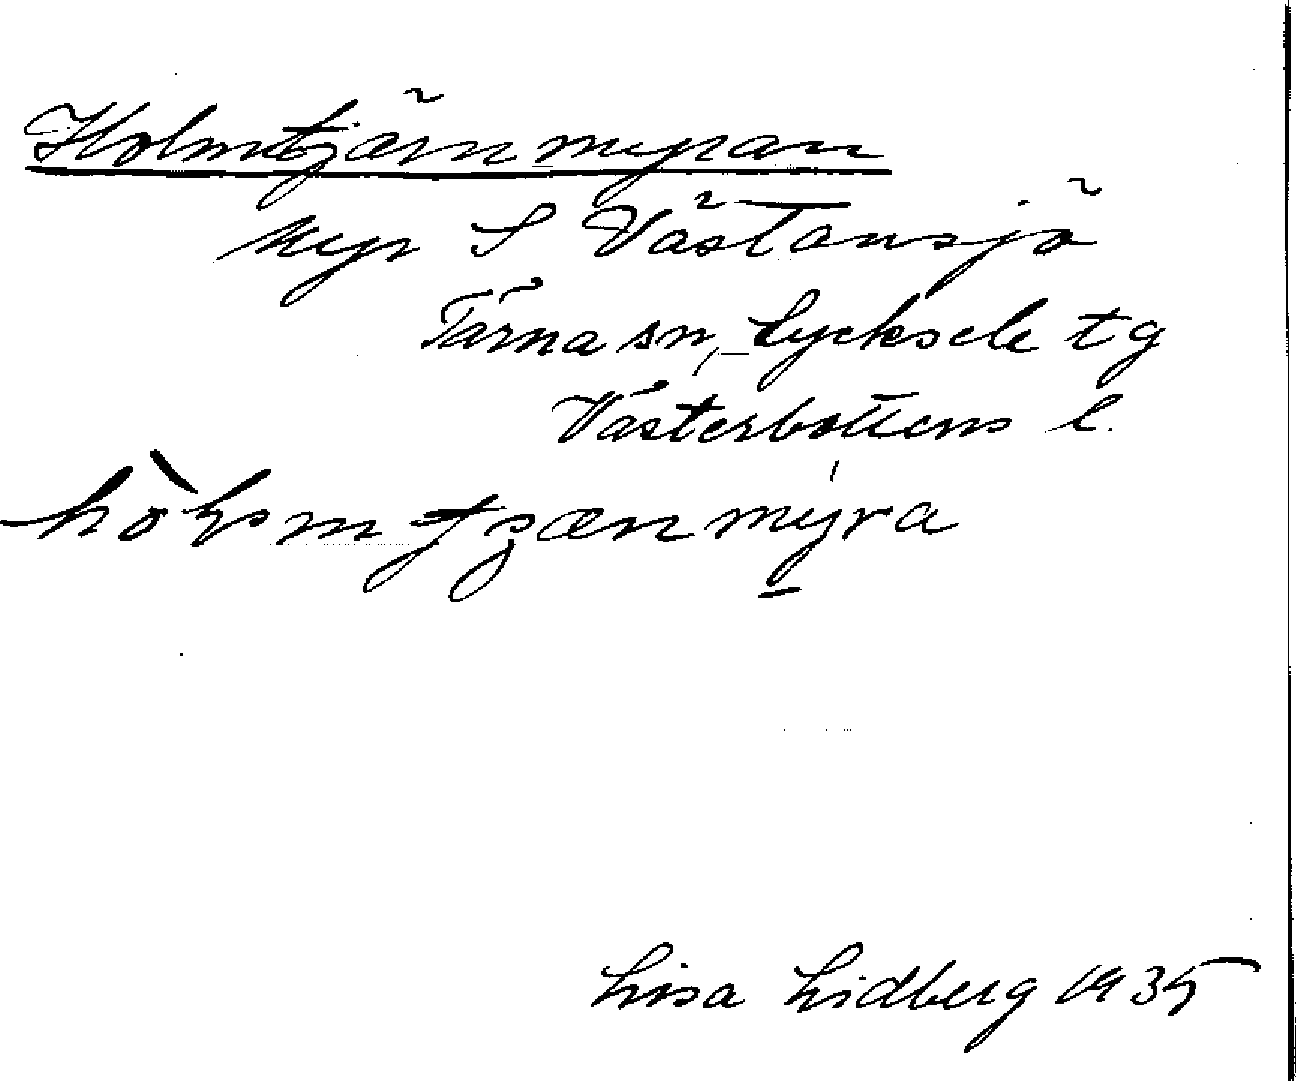 Holmtjärnmyran
Myr S Västansjö
Tärna sn, Lycksele tg
Västerbottens l.
Lisa Lidberg 1935